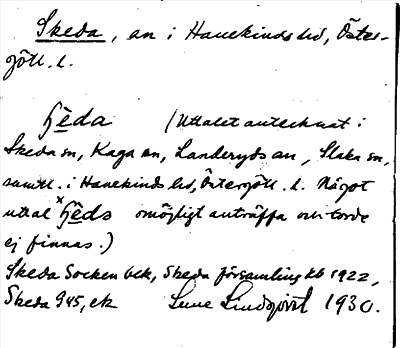 Skeda, sn i Hanekinds hd, Öster-
götl. l.
ɧèda (Uttalet antecknat i
Skeda sn, Kaga sn, Landeryds sn, Slaka sn,
samtl. i Hanekinds hd, Östergötl. l. Något
uttal ˣɧeds omöjligt anträffa och torde
ej finnas.)
Skeda Sockenbek, Skeda församling kb 1922,
Skeda 945, ek Sune Lindqvist 1930.